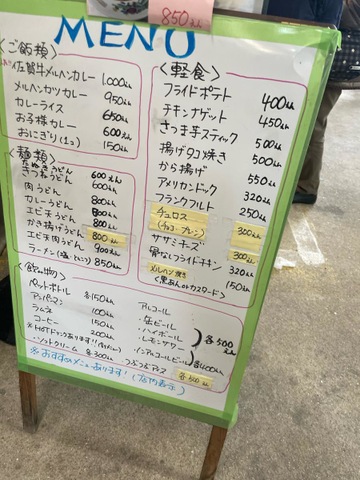 850えん
MENU
〈ご飯類〉
佐賀牛メルヘンカレー 1,000えん
メルヘンカツカレー 950えん
カレーライス 650えん
お子様カレー 600えん
おにぎり(1コ) 150えん
〈麺類〉
たぬきうどん
きつねうどん 600えん
肉うどん 600えん
カレーうどん 800えん
エビ天うどん 800えん
かき揚げうどん 800えん
エビ天肉うどん 900えん
ラーメン 850えん
〈軽食〉
フライドポテト 400えん
チキンナゲット 450えん
さつま芋スティック 500えん
揚げタコ焼き 500えん
から揚げ 550えん
アメリカンドック 320えん
フランクフルト 250えん
チュロス
(チョコ・プレーン) 300えん
ササミチーズ 300えん
骨なしフライドチキン 320えん
メルヘン焼き 150えん
(黒あんorカスタード)
〈飲み物〉
ペットボトル 各150えん
アンパンマン 100えん
ラムネ 200えん
コーヒー 150えん
※HOTドリンクあります!!
・ソフトクリーム 各300えん
アルコール
・缶ビール
・ハイボール
・レモンサワー
各500えん
・ノンアルコールビール 各400えん
つぶつぶアイス 各500えん
※おすすめメニューあります!(店内表示)